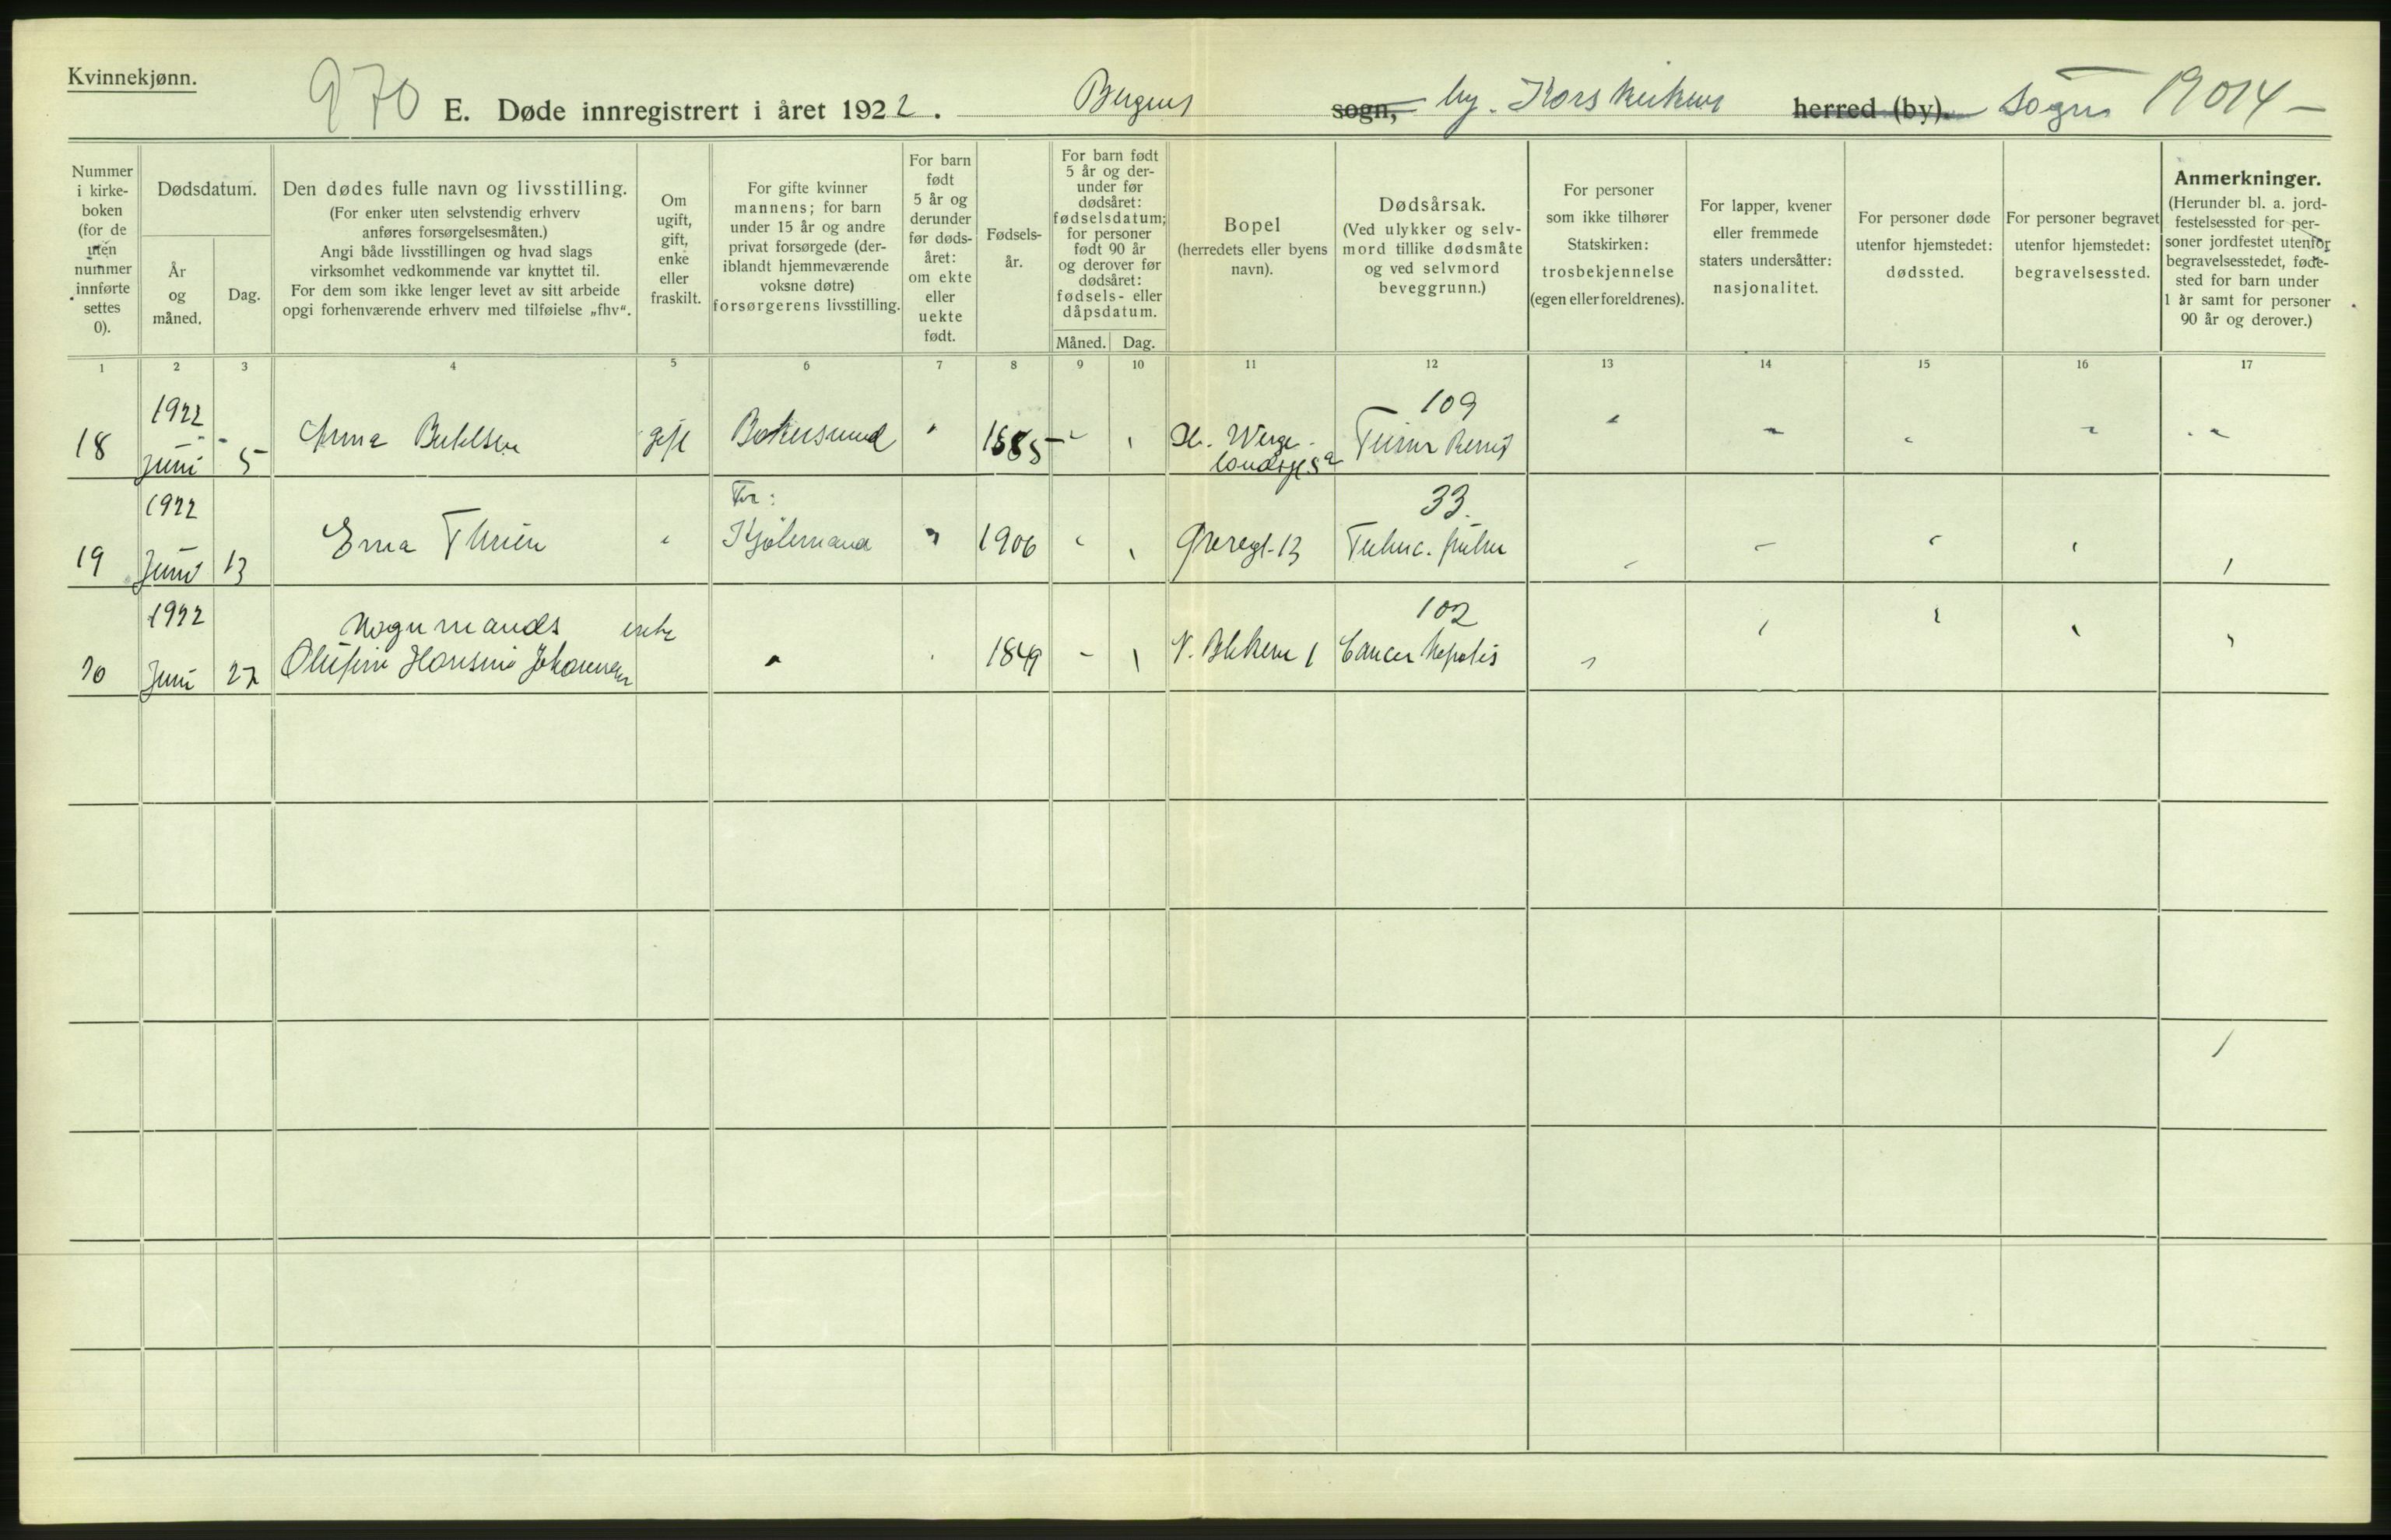 Kvinnekjønn.
970 E. Døde innregistrert i året 1922. Bergens sogn, by. Korskirkens herred (by). Sogn 19014 -
Nummer i kirke- boken (for de uten nummer innførte settes 0).
Dødsdatum.
År og måned.
Dag.
Den dødes fulle navn og livsstilling.
(For enker uten selvstendig erhverv
anføres forsørgelsesmåten.)
Angi både livsstillingen og hvad slags
virksomhet vedkommende var knyttet til.
For dem som ikke lenger levet av sitt arbeide
opgi forhenværende erhverv med tilføielse „fhv“.
Om
ugift,
gift,
enke
eller
fraskilt.
For gifte kvinner
mannens; for barn
under 15 år og andre
privat forsørgede (der-
iblandt hjemmeværende
voksne døtre)
forsørgerens livsstilling.
For barn
født
5 år og
derunder
før døds-
året:
om ekte
eller
uekte
født.
Fødsels-
år.
For barn født
5 år og der-
under før
dødsåret:
fødselsdatum;
for personer
født 90 år
og derover før
dødsåret:
fødsels- eller
dåpsdatum.
Måned. Dag.
Bopel
(herredets eller byens
navn).
Dødsårsak.
(Ved ulykker og selv-
mord tillike dødsmåte
og ved selvmord
beveggrunn.)
For personer
som ikke tilhører
Statskirken:
trosbekjennelse
(egen eller foreldrenes).
For lapper, kvener
eller fremmede
staters undersåtter:
nasjonalitet.
For personer døde
utenfor hjemstedet:
dødssted.
For personer begravet
utenfor hjemstedet:
begravelsessted.
Anmerkninger.
(Herunder bl. a. jord-
festelsessted for per-
soner jordfestet utenfor
begravelsesstedet, føde-
sted for barn under
1 år samt for personer
90 år og derover.)
1 2 3 4 5 6 7 8 9 10 11 12 13 14 15 16 17
1922 109
18 Juni 5 Anna gift 1885 H. Werge-
landsgt 5a
1922 Fa: 33.
19 Juni 13 Erna 1906 13
1922 Vognmands enke 102
20 Juni 27 Olufine Hansine Johannessen 1849 N. Blekevei 1 Cancer hepatis